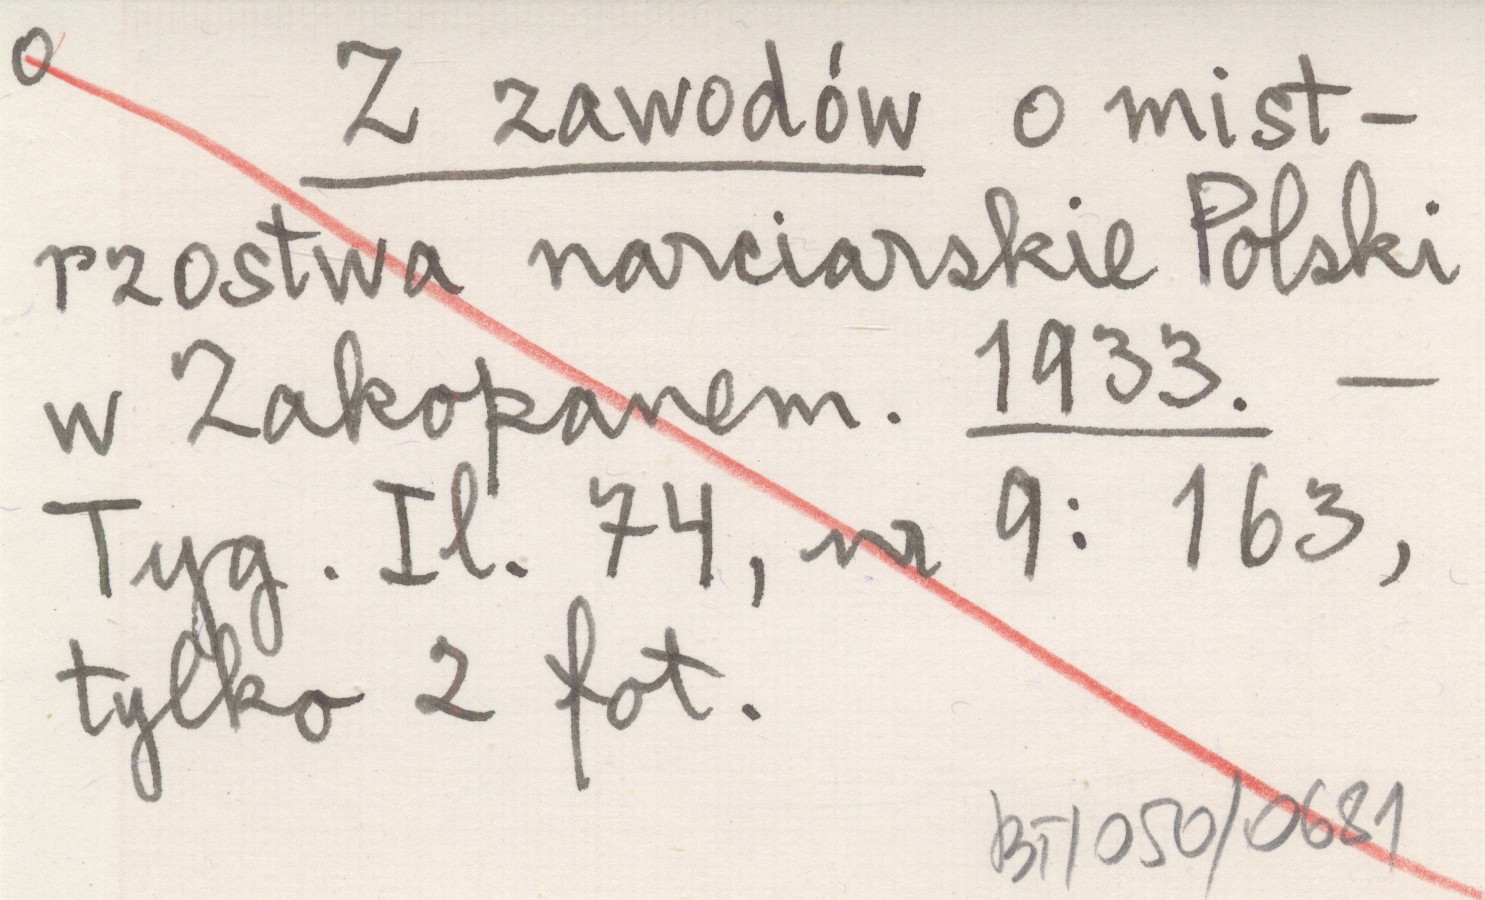 o Z zawodów o mist-
rzostwa narciarskie Polski
w Zakopanem. 1933. —
Tyg. Il. 74, nr 9: 163,
tylko 2 fot.
BT/050/0681